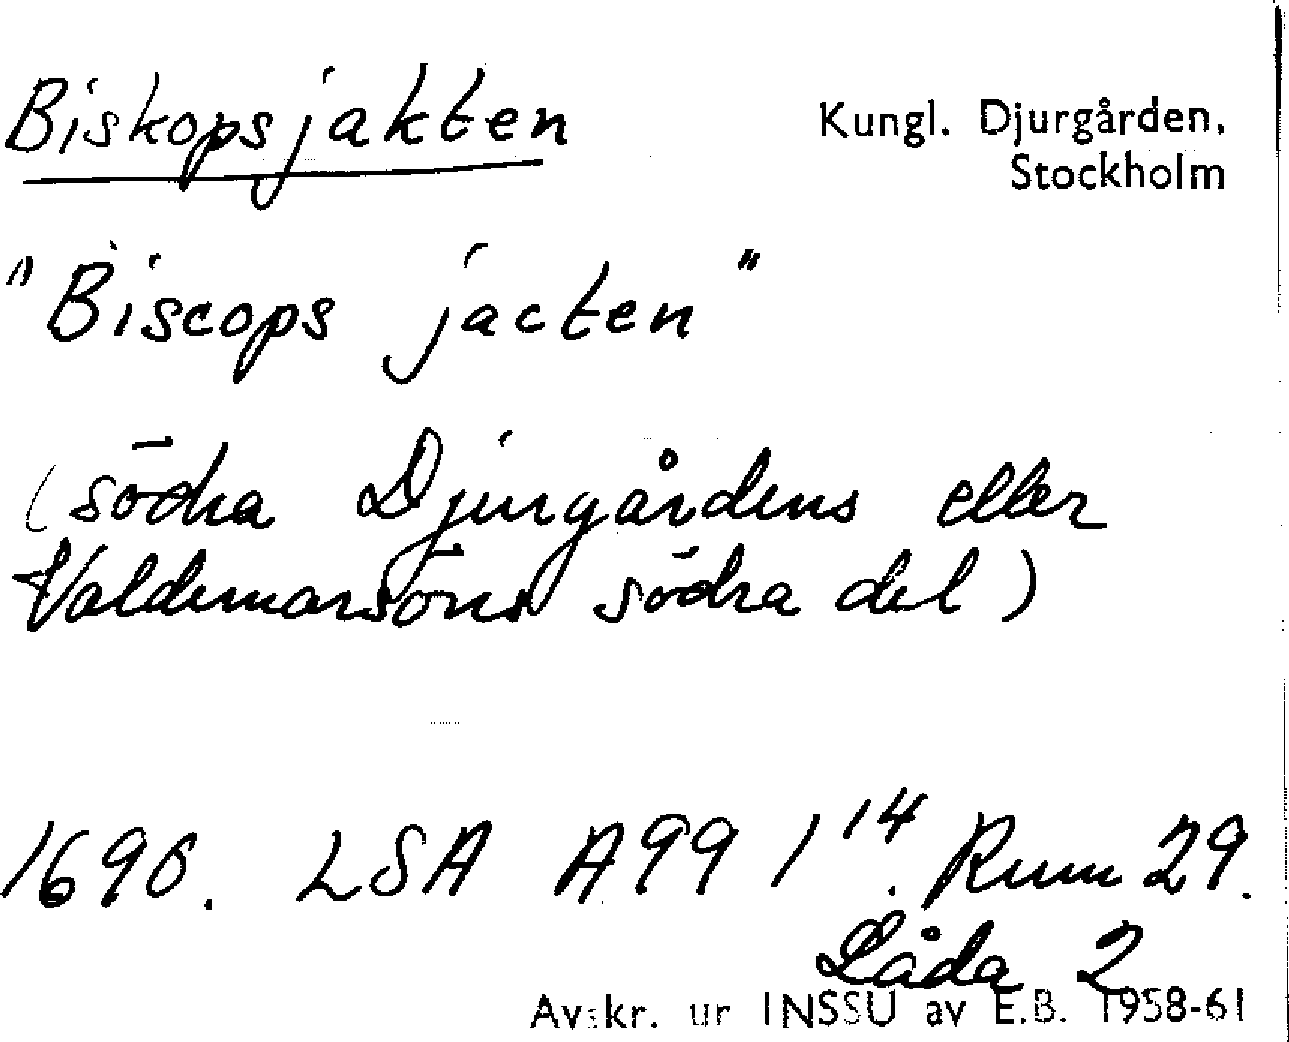 Biskopsjakten
Kungl. Djurgården,
Stockholm
"Biscops jacten"
(södra Djurgårdens eller
Valdemarsöns södra del)
1696. LSA A99 1¹⁴. Rum 29.
Låda 2
Avskr. ur INSSU av E.B. 1958-61